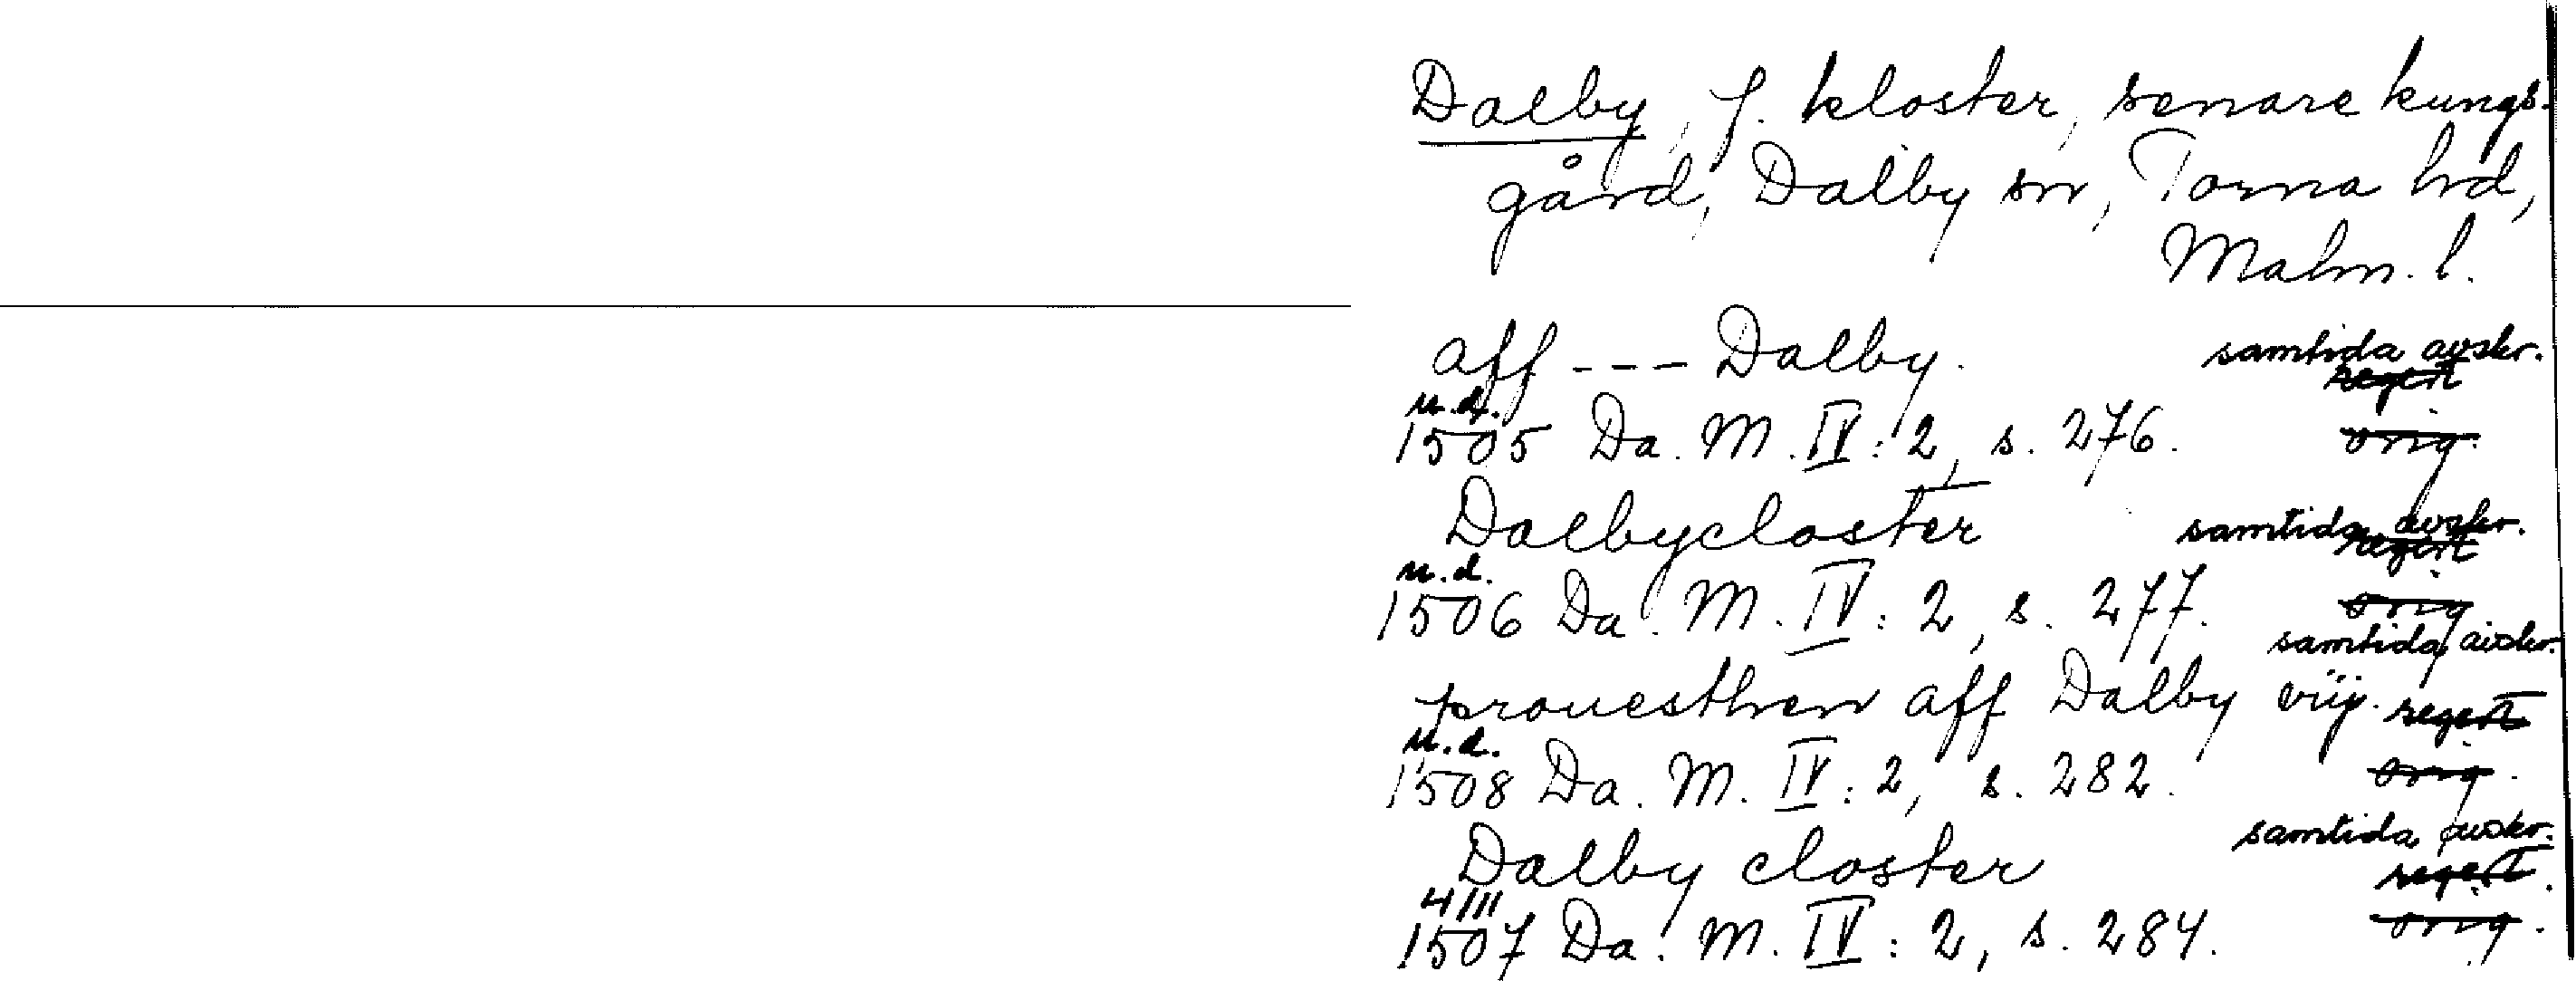 Dalby, f. kloster, senare kungs-
gård, Dalby sn, Torna hd,
Malm. l.
aff --- Dalby. samtida avskr.
regest
u. d.
1505 Da. M. IV: 2, s. 276. orig.
Dalbycloster samtida avskr.
regest
u. d.
1506 Da. M. IV: 2, s. 277. orig
samtida avskr.
prouesthen aff Dalby viij. regest
u. d.
1508 Da. M. IV: 2, s. 282. orig.
Dalby closter samtida avskr.
regest.
4/11
1507 Da. M. IV: 2, s. 284. orig.